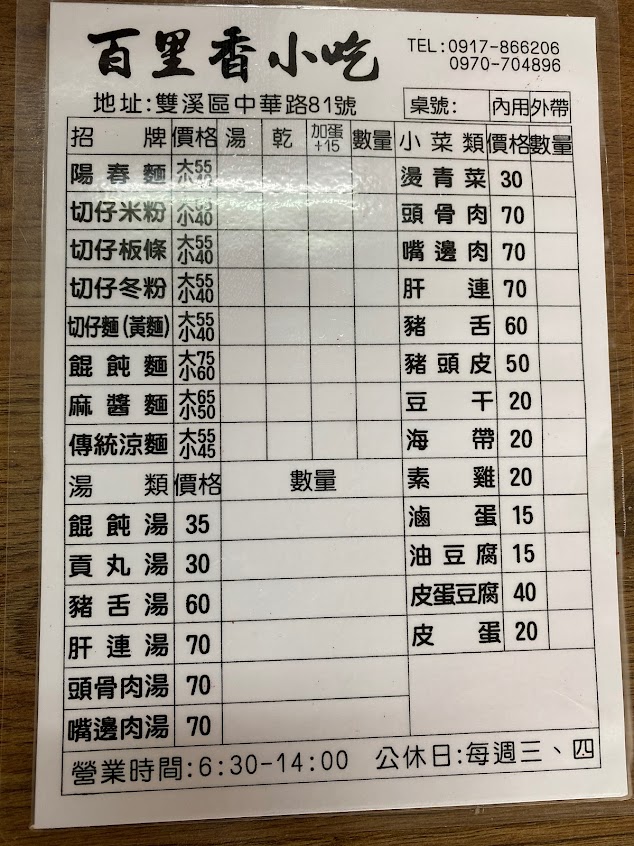 百里香小吃
TEL:0917-866206
0970-704896
地址:雙溪區中華路81號
桌號: 內用 外帶
招牌 價格 湯 乾 加蛋+15 數量
陽春麵 大55 小40
切仔米粉 大55 小40
切仔板條 大55 小40
切仔冬粉 大55 小40
切仔麵(黃麵) 大55 小40
餛飩麵 大75 小60
麻醬麵 大65 小50
傳統涼麵 大55 小45
湯類 價格 數量
餛飩湯 35
貢丸湯 30
豬舌湯 60
肝連湯 70
頭骨肉湯 70
嘴邊肉湯 70
小菜類 價格 數量
燙青菜 30
頭骨肉 70
嘴邊肉 70
肝連 70
豬舌 60
豬頭皮 50
豆干 20
海帶 20
素雞 20
滷蛋 15
油豆腐 15
皮蛋豆腐 40
皮蛋 20
營業時間:6:30-14:00 公休日:每週三、四